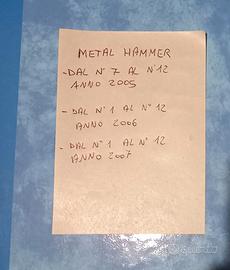 METAL HAMMER
- DAL N° 7 AL N° 12
ANNO 2005
- DAL N° 1 AL N° 12
ANNO 2006
- DAL N° 1 AL N° 12
ANNO 2007
subito